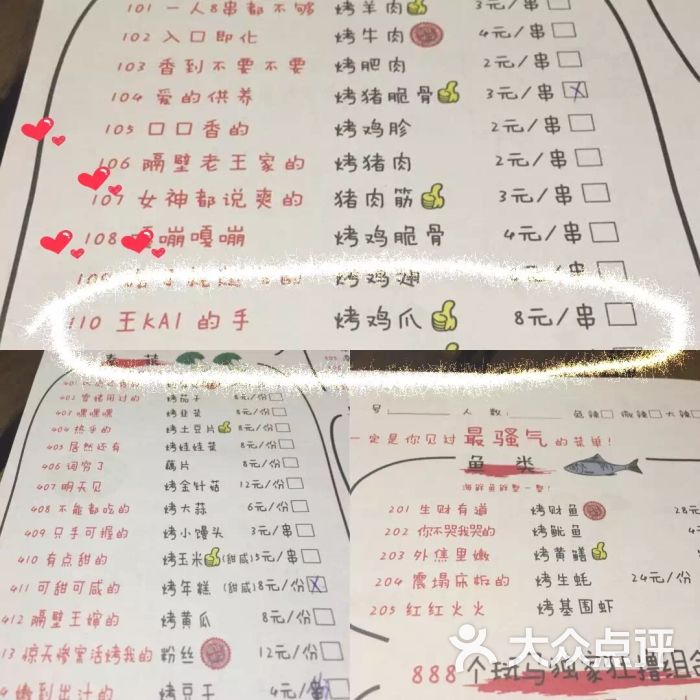 101 一人8串都不够 烤羊肉 3元/串
102 入口即化 烤牛肉 4元/串
103 香到不要不要 烤肥肉 2元/串
104 爱的供养 烤猪脆骨 3元/串
105 口口香的 烤鸡胗 2元/串
106 隔壁老王家的 烤猪肉 2元/串
107 女神都说爽的 猪肉筋 3元/串
108 嘎嘣嘎嘣 烤鸡脆骨 4元/串
烤鸡翅 元/串
110 王KAI的手 烤鸡爪 8元/串
素菜
401 8元/份
402 曹操用过的 烤茄子 8元/份
403 嘿嘿嘿 烤韭菜 8元/份
404 热乎的 烤土豆片 8元/份
405 居然还有 烤娃娃菜 8元/份
406 词穷了 藕片 8元/份
407 明天见 烤金针菇 12元/份
408 不能都吃的 烤大蒜 6元/份
409 只手可握的 烤小馒头 3元/串
410 有点甜的 烤玉米 (甜咸)5元/串
411 可甜可咸的 烤年糕 (甜咸)8元/份
412 隔壁王婶的 烤黄瓜 8元/份
13 惊天惨案活烤我的 粉丝 12元/份
嫩到出汁的 烤豆干 4元/份
号 人数 免辣 微辣 大辣
一定是你见过最骚气的菜单!
鱼类
海鲜鱼鲜整一整!
201 生财有道 烤财鱼 28元
202 你不哭我哭的 烤鱿鱼
203 外焦里嫩 烤黄鳝
204 震塌床板的 烤生蚝 24元/份
205 红红火火 烤基围虾
888个斑马独家狂撸组合
大众点评